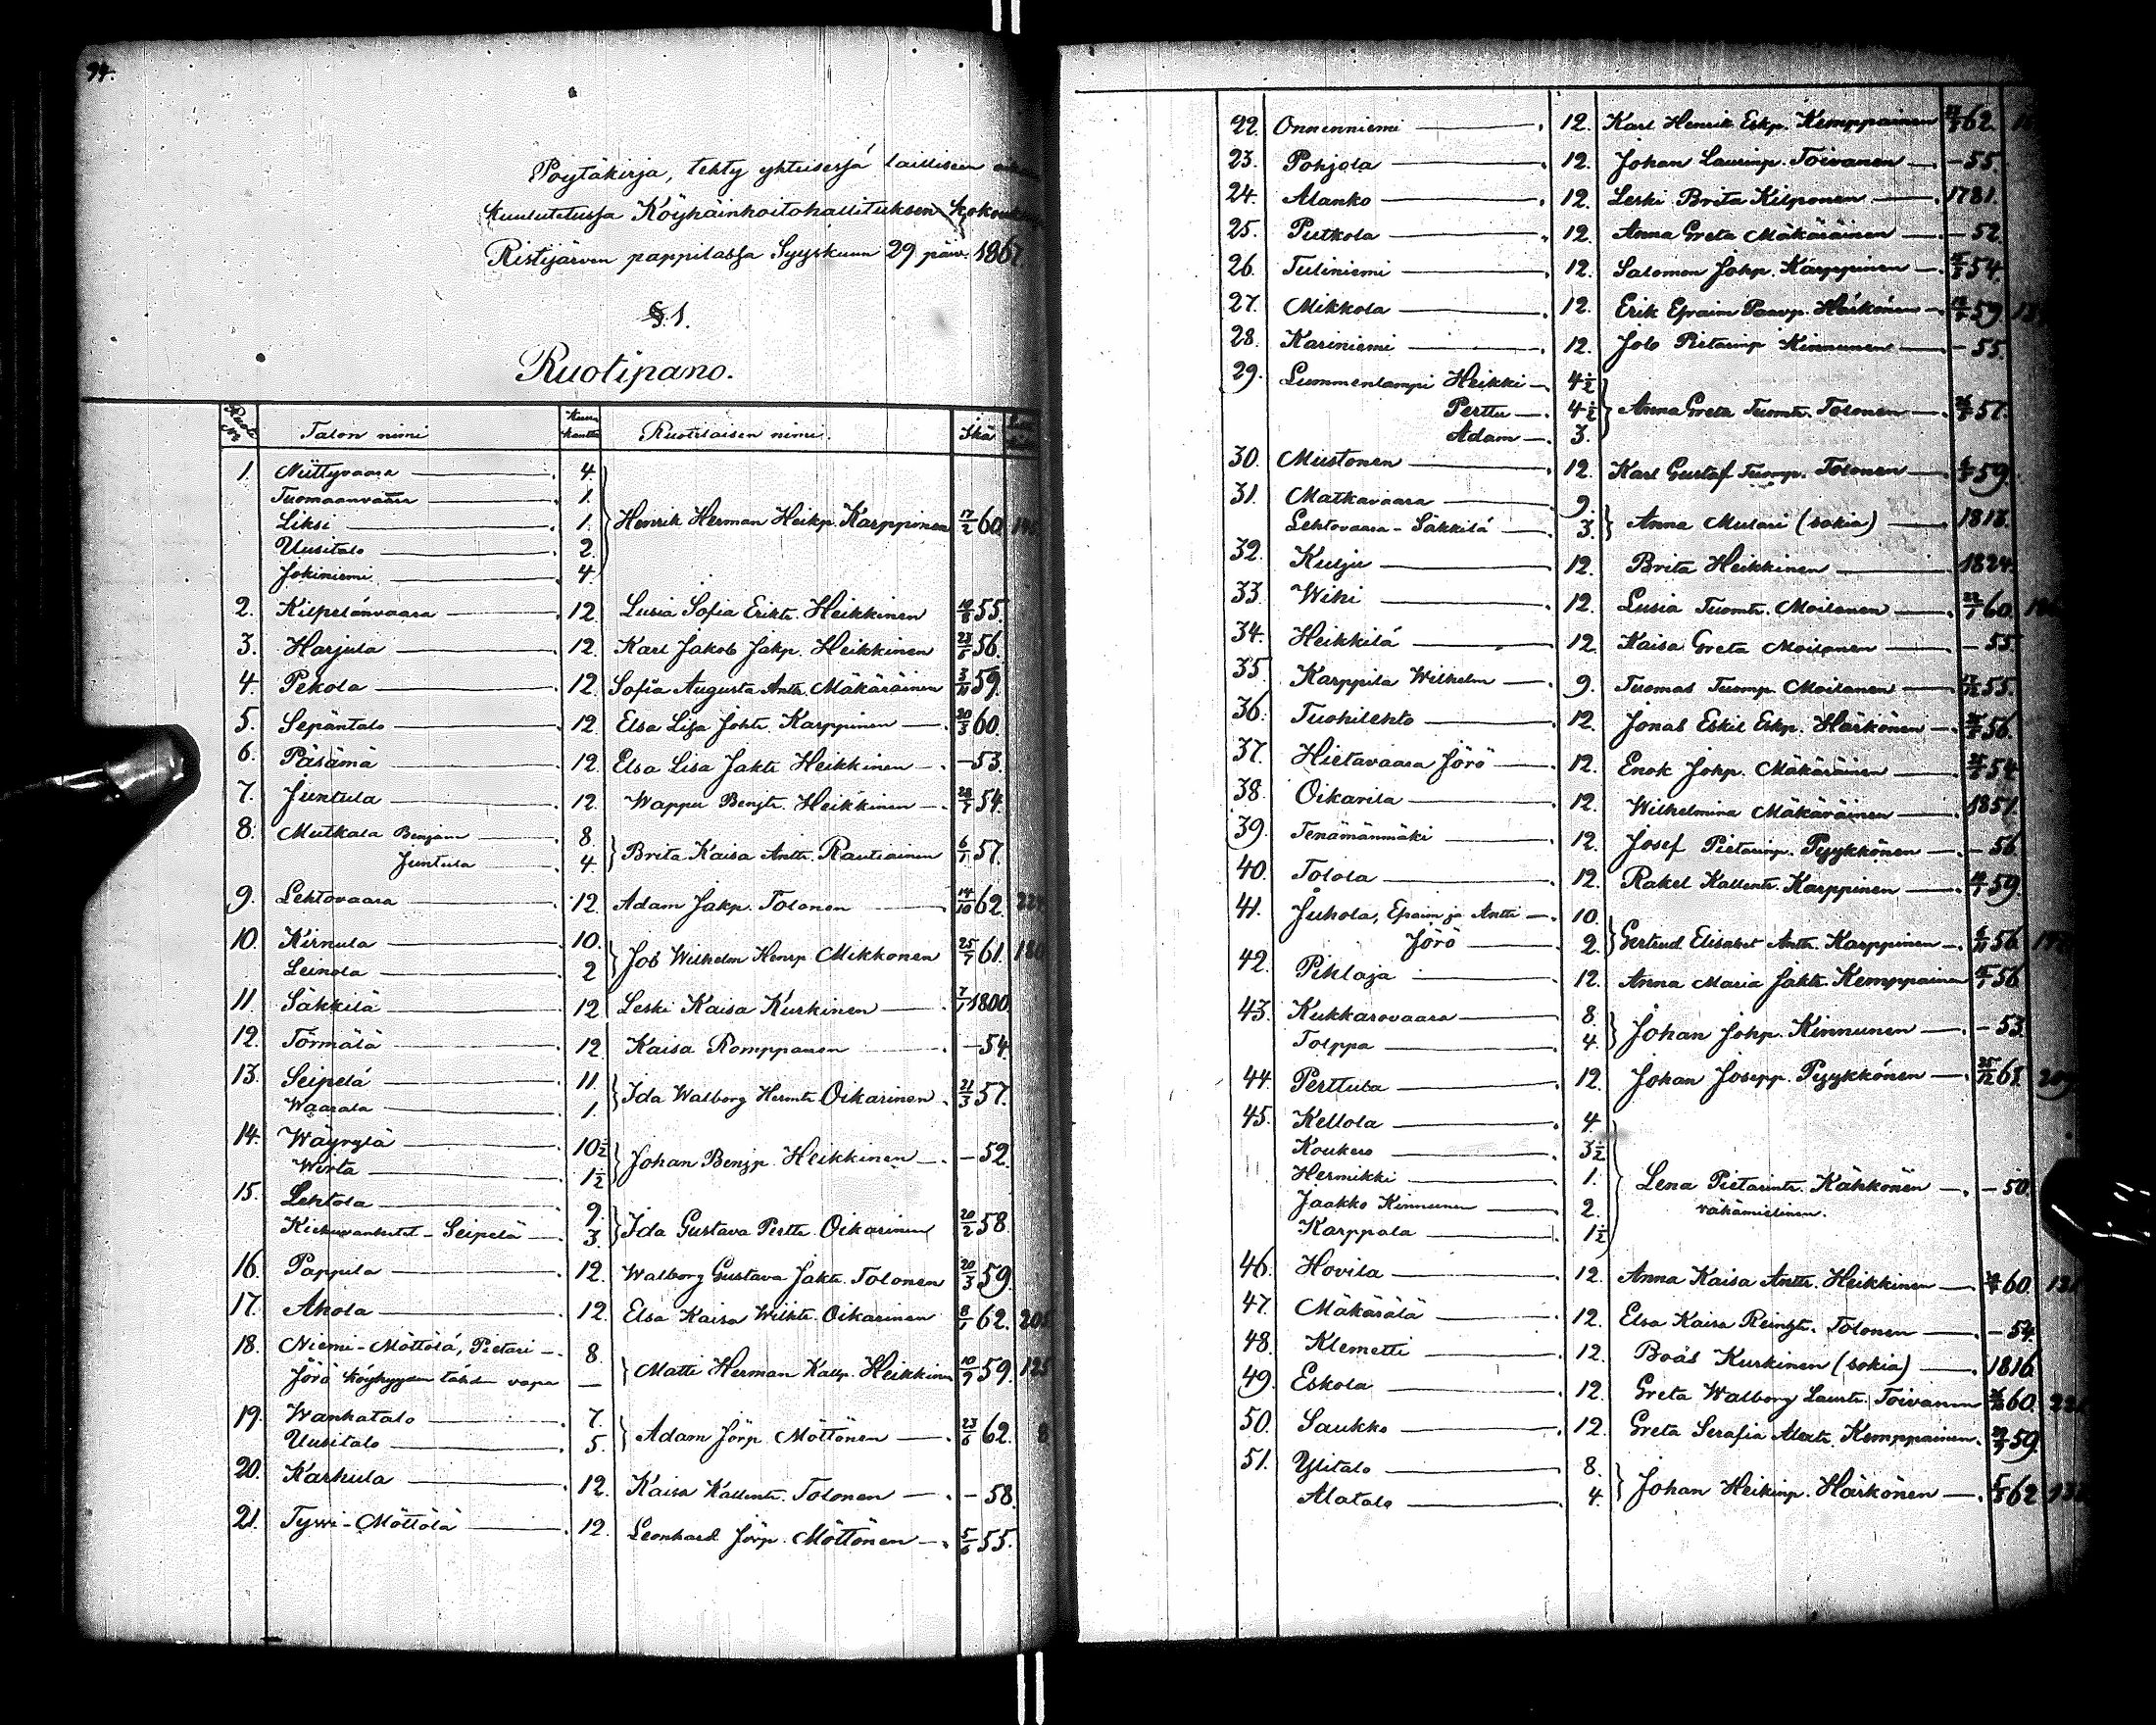 94.
Pöytäkirja, tehty yhteisessä laillisen
kuulutetussa Köyhäinhoitohallituksen
Ristijärven pappilassa Syyskuun 29 päiv. 1867.
§. 1.
Ruotipano.
Talon nimi Ruotilaisen nimi. Ikä
1. Niittyvaara 4.
Tuomaanvaara 1.
Liksi 1. Henrik Herman Heikp. Karppinen 17/2 60.
Uusitalo 2.
Jokiniemi 4.
2. Kilpelänvaara 12. Lusia Sofia Erikte. Heikkinen 55.
3. Harjula 12. Karl Jakob Jakp. Heikkinen 56.
4. Pekola 12. Sofia Augusta Antt. Mäkäräinen 59.
5. Sepäntalo 12. Elsa Lisa Johte. Karppinen 20/3 60.
6. Päsämä 12. Elsa Lisa Jakte Heikkinen – 53.
7. Juntula 12. Wappu Benjte. Heikkinen 54.
8. Mutkala Benjam 8.
Juntula 4. Brita Kaisa Antte. Rautiainen 6/1 57.
9. Lehtovaara 12. Adam Jakp. Tolonen 14/10 62.
10. Kirnula 10.
Leinola 2 Job Wilhelm Henrp Mikkonen 25/7 61.
11. Säkkilä 12. Leski Kaisa Kurkinen 1800.
12. Törmälä 12. Kaisa Romppanen – 54.
13. Seipelä 11.
Waarala 1. Ida Walborg Hermte. Oikarinen 21/3 57.
14. Wäyrylä 10½
Wirta 1½ Johan Benjp. Heikkinen – 52.
15. Lehtola 9.
Seipelä 3. Ida Gustava Pertte. Oikarinen 20/2 58.
16. Pappila 12. Walborg Gustava Jakte. Tolonen 20/3 59.
17. Ahola 12. Elsa Kaisa Wilhte. Oikarinen 8/1 62.
18. Niemi-Möttölä, Pietari 8.
Jörö köyhyyden tähden vapa — Matti Herman Kallp. Heikkinen 10/9 59. 125
19. Wanhatalo 7.
Uusitalo 5. Adam Jörp. Möttönen 23/6 62.
20. Karhula 12. Kaisa Kallente. Tolonen – 58.
21. Tyvi-Möttölä 12. Leonhard Jörp. Möttönen 5/6 55.
22. Onnenniemi 12. Karl Henrik Eskp. Kemppainen 62.
23. Pohjola 12. Johan Laurinp. Toivanen – 55.
24. Alanko 12. Leski Brita Kilponen 1781.
25. Putkola 12. Anna Greta Mäkäräinen – 52.
26. Tuliniemi 12. Salomon Johp. Karppinen 54.
27. Mikkola 12. Erik Efraim Paavp. Härkönen 59.
28. Kariniemi 12. Job Pietarinp Kinnunen – 55.
29. Lummenlampi Heikki 4½
Perttu 4½ Anna Greta Tuomte. Tolonen 57.
Adam 3.
30. Mustonen 12. Karl Gustaf Tuomp. Tolonen 59.
31. Matkavaara 9.
Lehtovaara-Säkkilä 3. Anna Mulari (sokia) 1813.
32. Kulju 12. Brita Heikkinen 1824.
33. Wihi 12. Lusia Tuomte. Moilanen 60.
34. Heikkilä 12. Kaisa Greta Moilanen – 55.
35. Karppila Wilhelm 9. Tuomas Tuomp. Moilanen 55.
36. Tuohilehto 12. Jonas Eskil Eskp. Härkönen 56.
37. Hietavaara Jörö 12. Enok Johp. Mäkäräinen 54.
38. Oikarila 12. Wilhelmina Mäkäräinen 1851.
39. Tenämänmäki 12. Josef Pietarinp. Pyykkönen – 56
40. Tolola 12. Rakel Kallente. Karppinen 59.
41. Juhola, Efraim ja Antti 10.
Jörö 2. Gertrud Elisabet Antte. Karppinen 56
42. Pihlaja 12. Anna Maria Jakte. Kemppainen 56
43. Kukkarovaara 8.
Tolppa 4. Johan Johp. Kinnunen – 53.
44. Perttula 12. Johan Josepp. Pyykkönen 25/12 61.
45. Kellola 4.
Koukero 3½
Hermikki 1. Lena Pietarinte. Kähkönen – 50.
Jaakko Kinnunen 2. vähämielinen.
Karppala 1½
46. Hovila 12. Anna Kaisa Antte. Heikkinen 60.
47. Mäkärälä 12. Elsa Kaisa Reinjte. Tolonen – 54.
48. Klemetti 12. Boas Kurkinen (sokia) 1816.
49. Eskola 12. Greta Walborg Laurte. Toivanen 60.
50. Saukko 12. Greta Serafia Alexte. Kemppainen. 59.
51. Ylitalo 8.
Alatalo 4. Johan Heikinp. Härkönen 62